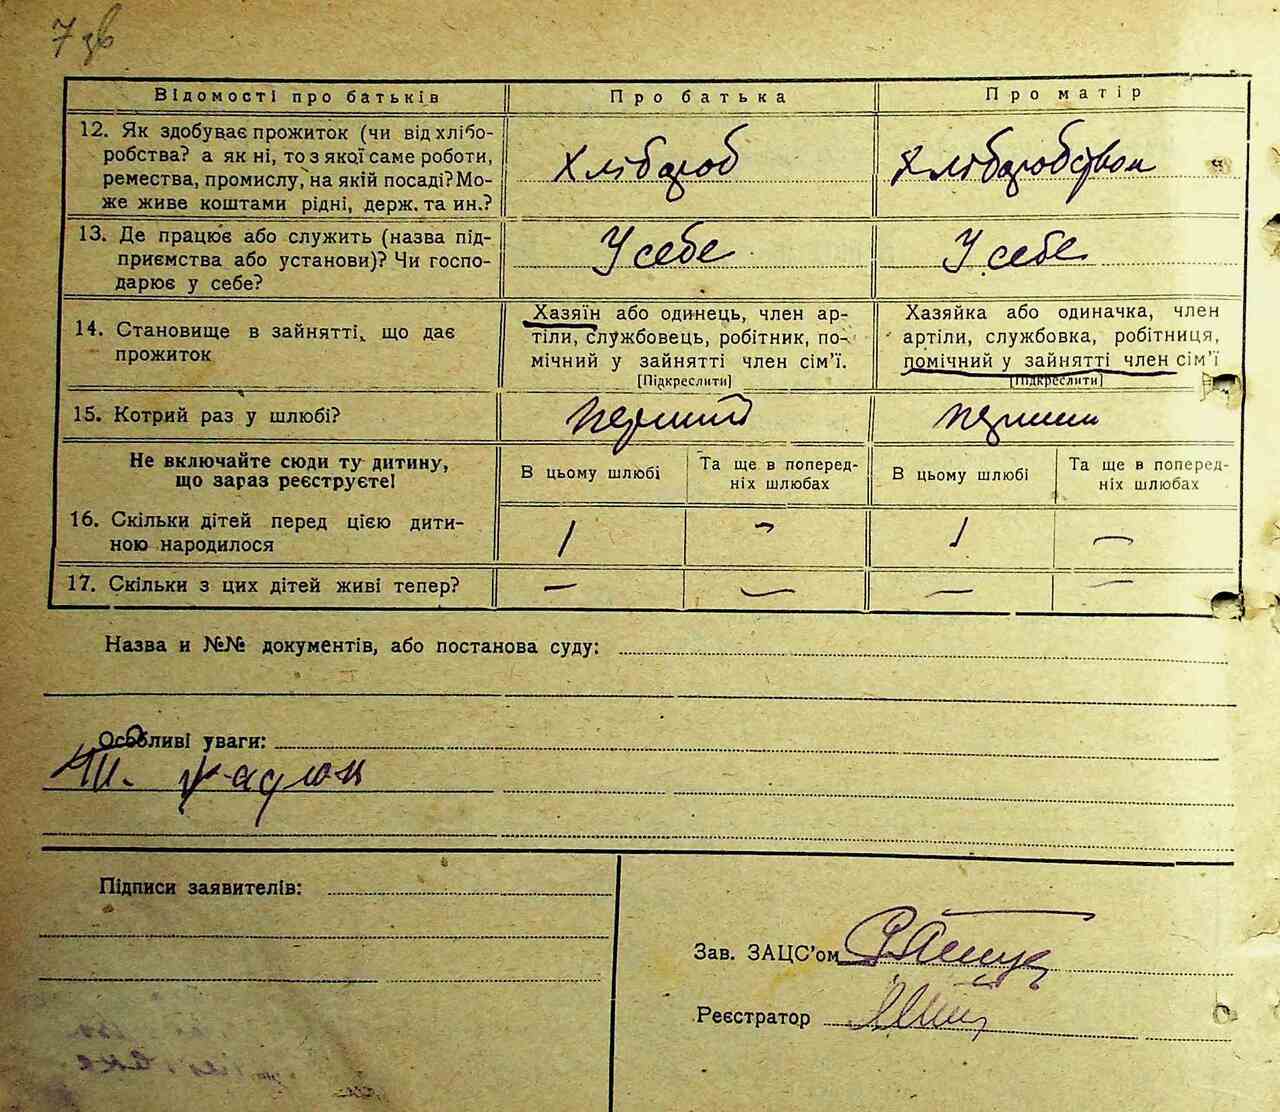 7 зв
Відомості про батьків
Про батька
Про матір
12. Як здобуває прожиток (чи від хлібо-
робства? а як ні, то з якої саме роботи,
ремества, промислу, на якій посаді? Мо-
же живе коштами рідні, держ. та ин.?
Хлібороб
Хліборобством
13. Де працює або служить (назва під-
приємства або установи)? Чи госпо-
дарює у себе?
У себе
У себе
14. Становище в зайнятті, що дає
прожиток
Хазяїн або одинець, член ар-
тіли, службовець, робітник, по-
мічний у зайнятті член сім'ї.
[Підкреслити]
Хазяйка або одиначка, член
артіли, службовка, робітниця,
помічний у зайнятті член сім'ї
[Підкреслити]
15. Котрий раз у шлюбі?
перший
перший
Не включайте сюди ту дитину,
що зараз реєструєте!
В цьому шлюбі
Та ще в поперед-
ніх шлюбах
В цьому шлюбі
Та ще в поперед-
ніх шлюбах
16. Скільки дітей перед цією дити-
ною народилося
1
—
1
—
17. Скільки з цих дітей живі тепер?
—
—
—
—
Назва и №№ документів, або постанова суду:
Особливі уваги:
Підписи заявителів:
Зав. ЗАЦС'ом
Реєстратор